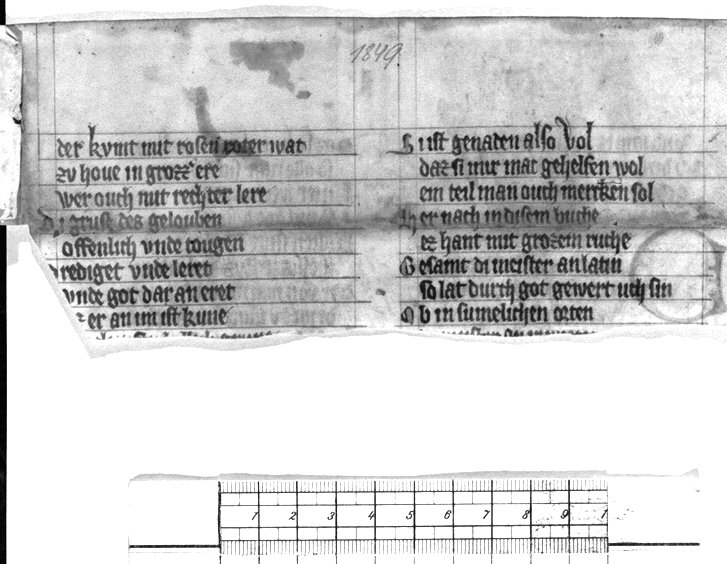 1849.
der kvmt mit rosen roter wat
zv houe in grozz ere
wer ouch mit rechter lere
Di gruft des gelouben
offenlich vnde tougen
rediget vnde leret
vnde got dar an eret
er an im ist kune
Si ist genaden also vol
daz si mir mac gehelfen wol
ein teil man ouch merken sol
her nach in disem buche
ez hant mit grozem ruche
Gesamt di meister an latin
so lat durch got gewert uch sin
Ob in sumelichen orten
1 2 3 4 5 6 7 8 9 1